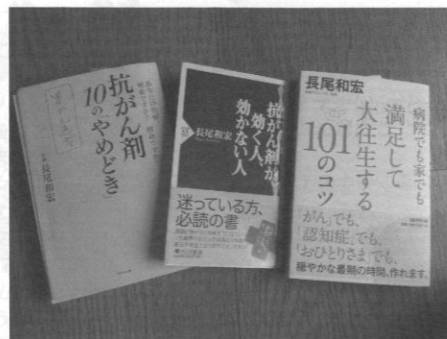 抗がん剤
10の「やめどき」
長尾和宏
抗がん剤が
効く人、
効かない人
長尾和宏
迷っている方、
必読の書
長尾和宏
病院でも家でも
満足して
大往生する
101のコツ
「がん」でも、
「認知症」でも、
「おひとりさま」でも、
穏やかな最期の時間、作れます。